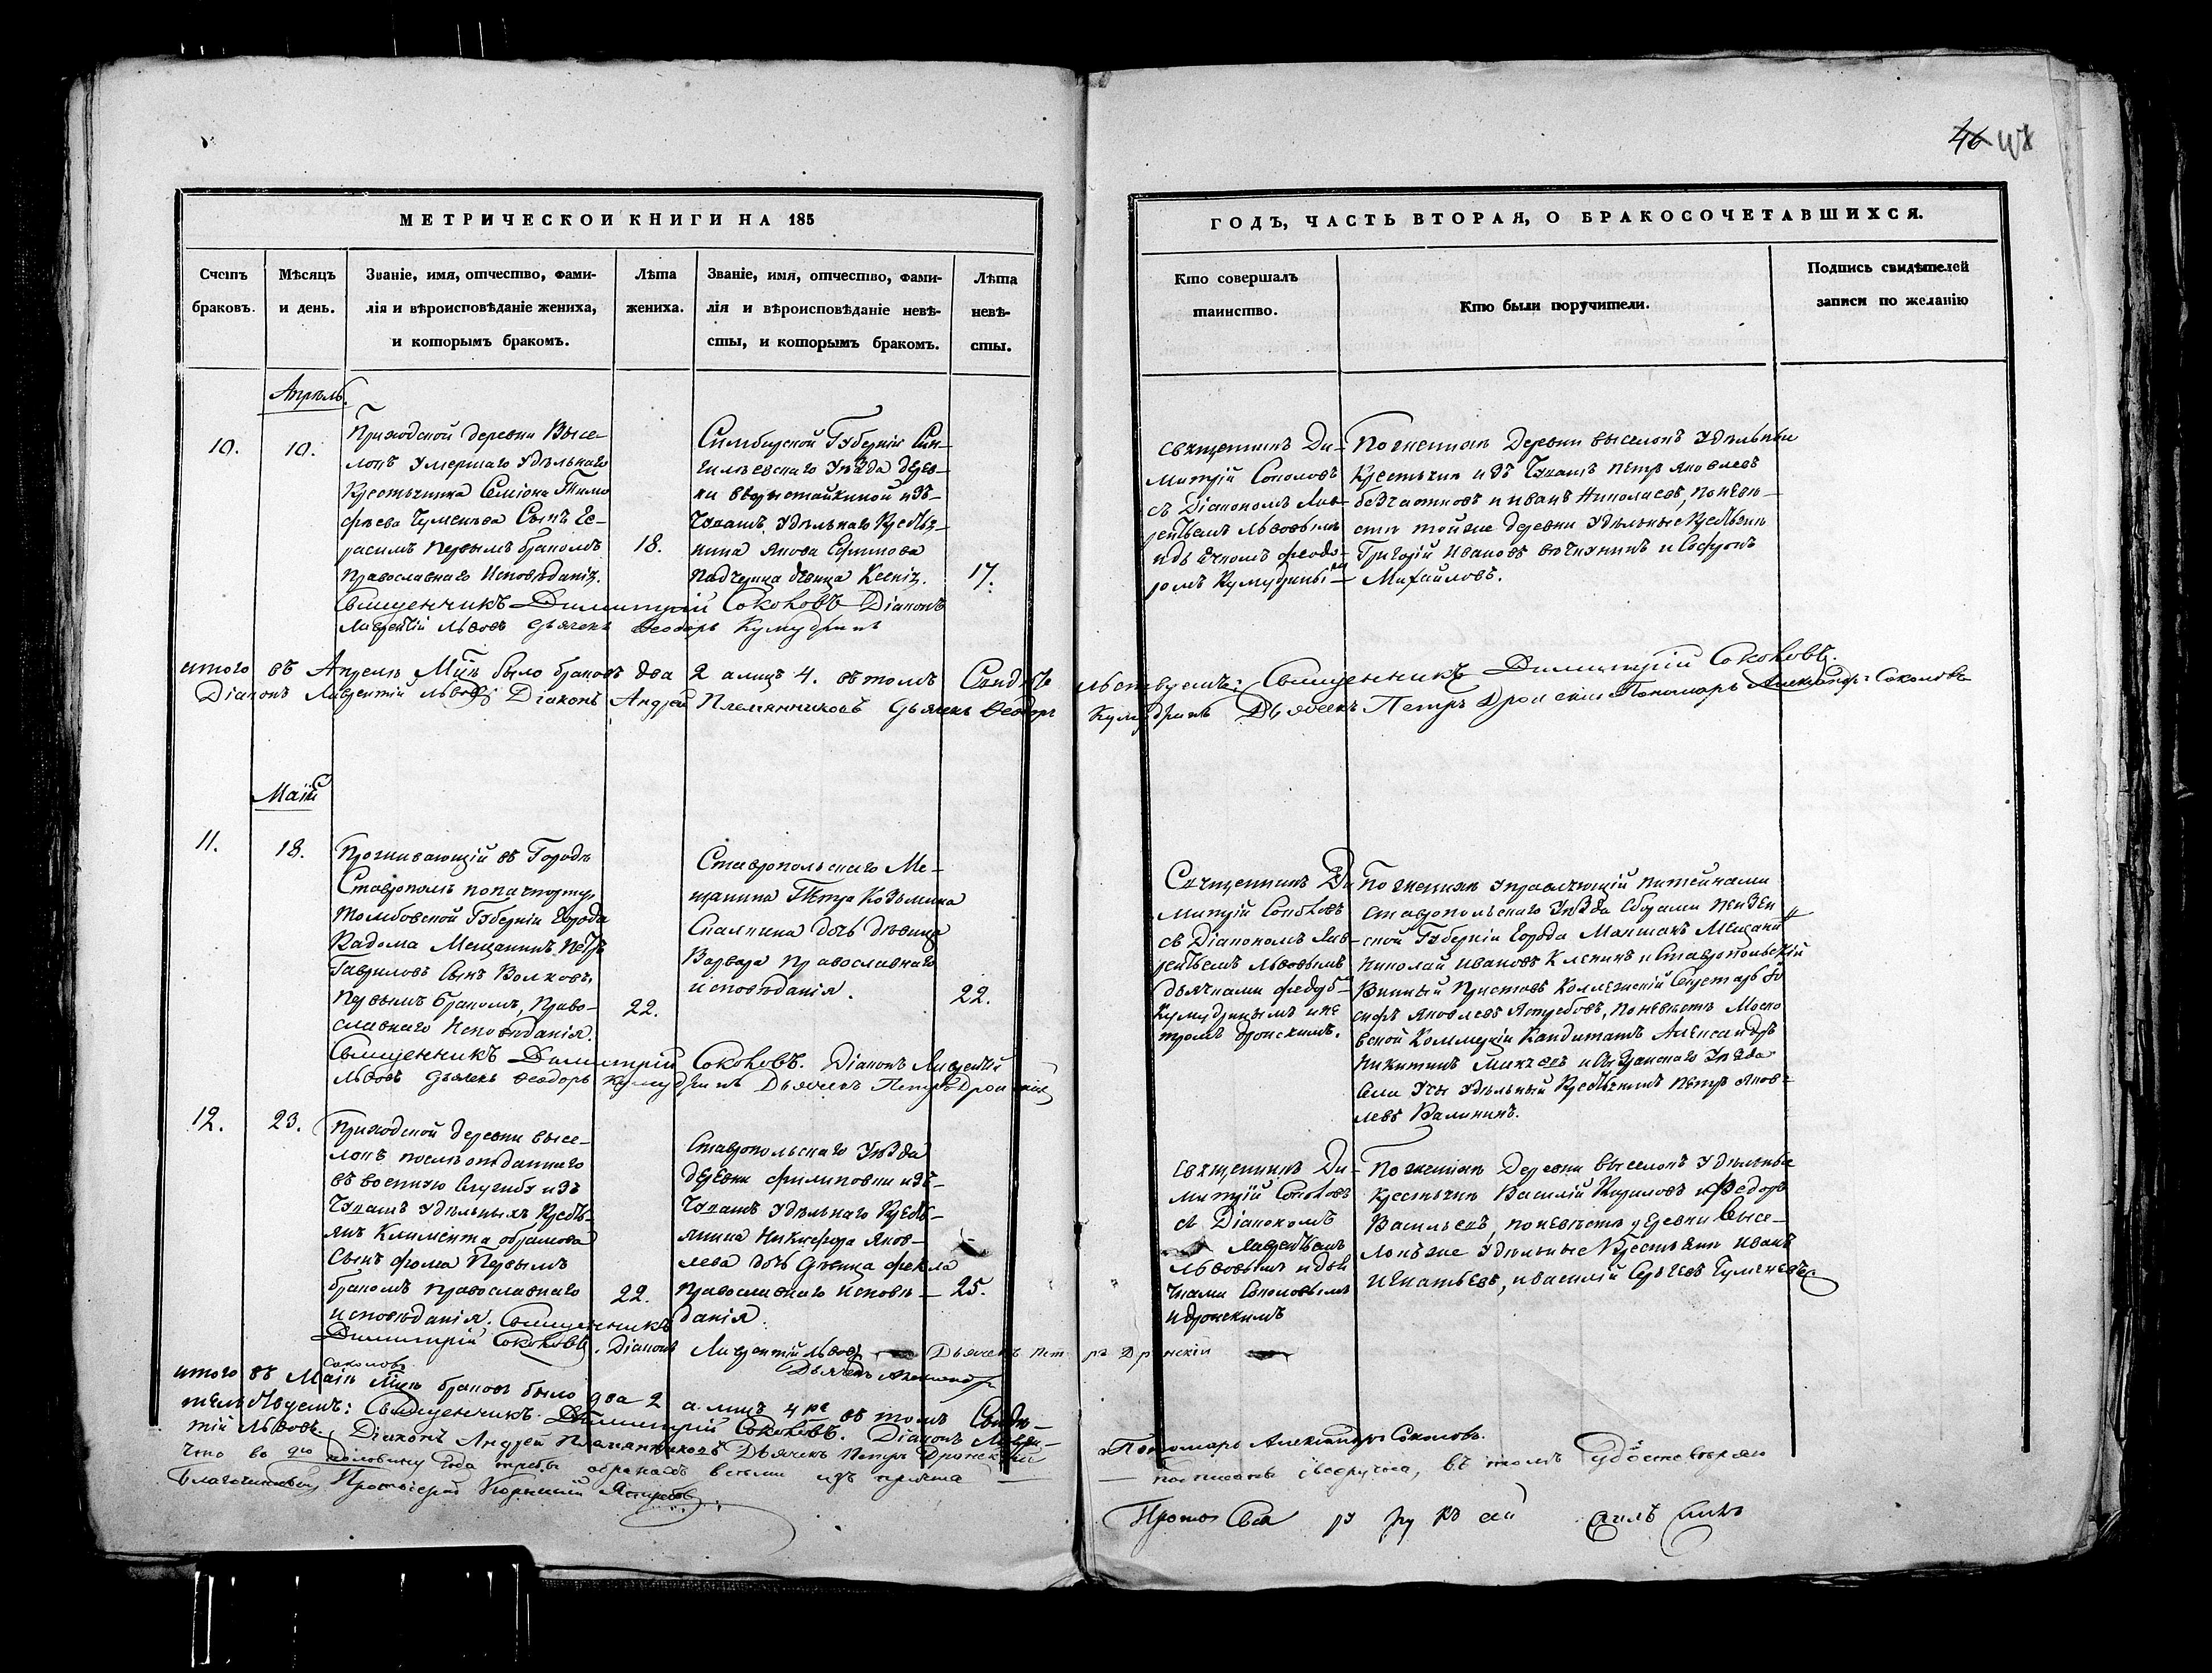 46
МЕТРИЧЕСКОЙ КНИГИ НА 185
ГОДЪ, ЧАСТЬ ВТОРАЯ, О БРАКОСОЧЕТАВШИХСЯ.
Счетъ
браковъ.
Мѣсяцъ
и день.
Званіе, имя, отчество, фами-
лія и вѣроисповѣданіе жениха,
и которымъ бракомъ.
Лѣта
жениха.
Званіе, имя, отчество, фами-
лія и вѣроисповѣданіе невѣ-
сты, и которымъ бракомъ.
Лѣта
невѣ-
сты.
Кто совершалъ
таинство.
Кто были поручители.
Подпись свидѣтелей
записи по желанію
Апрѣль.
10.
10.
Приходской деревни Высе-
локъ умершаго удѣльнаго
Крестьянина Семіона Тимо
фѣева Чуменева Сынъ Ге-
расимъ первымъ бракомъ
Православнаго Исповѣданія.
18.
Симбирской Губерніи Сен-
гилѣевскаго Уѣзда дерев-
ни изъ-
Чувашъ удѣльнаго Крестья-
нина Якова Ефимова
Падчерица дѣвица Ксенія.
17.
Священникъ Ди-
митрій Соколовъ
съ Діакономъ Лав-
рентьемъ Львовымъ
и дьячкомъ Феодо-
ромъ Кумудинымъ
По женихѣ Деревни выселокъ Удѣльные
Крестьяне изъ Чувашъ Петръ Яковлевъ
и Иванъ Николаевъ, по невѣ-
стѣ тойже деревни Удѣльные Крестьяне
Григорій Ивановъ и Софронъ
Михайловъ.
Священникъ Димитрій Соколовъ Діаконъ
Лаврентій Львовъ Дьячекъ Ѳеодоръ
итого въ Апрелѣ Мцѣ было браковъ два 2 а лицъ 4. въ томъ Свидѣте
льствуемъ: Священникъ Димитрій Соколовъ.
Діаконъ Лаврентій Львовъ Діаконъ Андрей Племянниковъ Дьячекъ Ѳеодоръ
Дьячекъ Петръ Дронскій Пономарь Александръ Соколовъ
Маій
11.
18.
Проживающій въ Городѣ
Ставрополѣ по пачпорту,
Тамбовской Губерніи Города
Кадома Мещанинъ Петръ
Гавриловъ Сынъ Волковъ,
Первымъ бракомъ, Право-
славнаго Исповѣданія.
22.
Ставропольскаго Ме-
щанина Петра Козьмина
дочь дѣвица
Варвара Православнаго
исповѣданія.
22.
Священникъ Ди
митрій Соколовъ
съ Діакономъ Лав-
рентьемъ Львовымъ
дьячками
и Пе
тромъ Дронскимъ.
По женихѣ управляющій питейными
Ставропольскаго Уѣзда Сборами Пензен
ской Губерніи Города Мокшанъ Мещани
Николай Ивановъ Клепинъ и Ставропольскій
Винный Приставъ Коллежскій Секретарь Іо
сифъ Яковлевъ Ястребовъ, По невѣстѣ Моско
вской Коммерціи Кандитатъ Александръ
Никитинъ и Сызранскаго Уѣзда
Села Усы Удѣльный Крестьянинъ Петръ Яков-
левъ Калининъ.
Священникъ Димитрій Соколовъ. Діаконъ Лаврентій
Львовъ Дьячекъ Ѳеодоръ Дьячекъ Петръ Дронскій
12.
23.
Приходской деревни высе-
локъ послѣ отданнаго
въ военную Службу изъ
Чувашъ Удѣльныхъ Кресть-
янъ Климента Абрамова
Сынъ Фома Первымъ
бракомъ православнаго
исповѣданія.
22.
Ставропольскаго Уѣзда
деревни Филиповки изъ-
Чувашъ Удѣльнаго Кресть-
янина Никифора Яков-
лева дочь дѣвица Фекла
Православнаго Исповѣ-
данія.
25.
Священникъ Ди-
митрій Соколовъ
съ Діакономъ
Лаврентьемъ
Львовымъ и дья
чками Соколовымъ
и Дронскимъ
По женихѣ Деревни выселокъ Удѣльные
крестьяне Василій Кириловъ и Федоръ
Васильевъ, по невѣстѣ деревни Высе-
локъ же Удѣльные Крестьяне Иванъ
Игнатьевъ, и Василій Сергѣевъ Чуменевъ
Священникъ
Димитрій Соколовъ. Діаконъ Лаврентій Львовъ Дьячекъ Петръ Дронскій
Дьячекъ Александръ
Соколовъ
итого въ Маіѣ Мцѣ браковъ было два 2 а лицъ 4ре въ томъ Свидѣ-
тельствуемъ: Священникъ Димитрій Соколовъ. Діаконъ Лаврен-
тій Львовъ. Діаконъ Андрей Племянниковъ Дьячекъ Петръ Дронскій
Пономарь Александръ Соколовъ.
что во половину года
подписаны въ томъ удостовѣряю
Благочинный, Протоіерей Ястребовъ